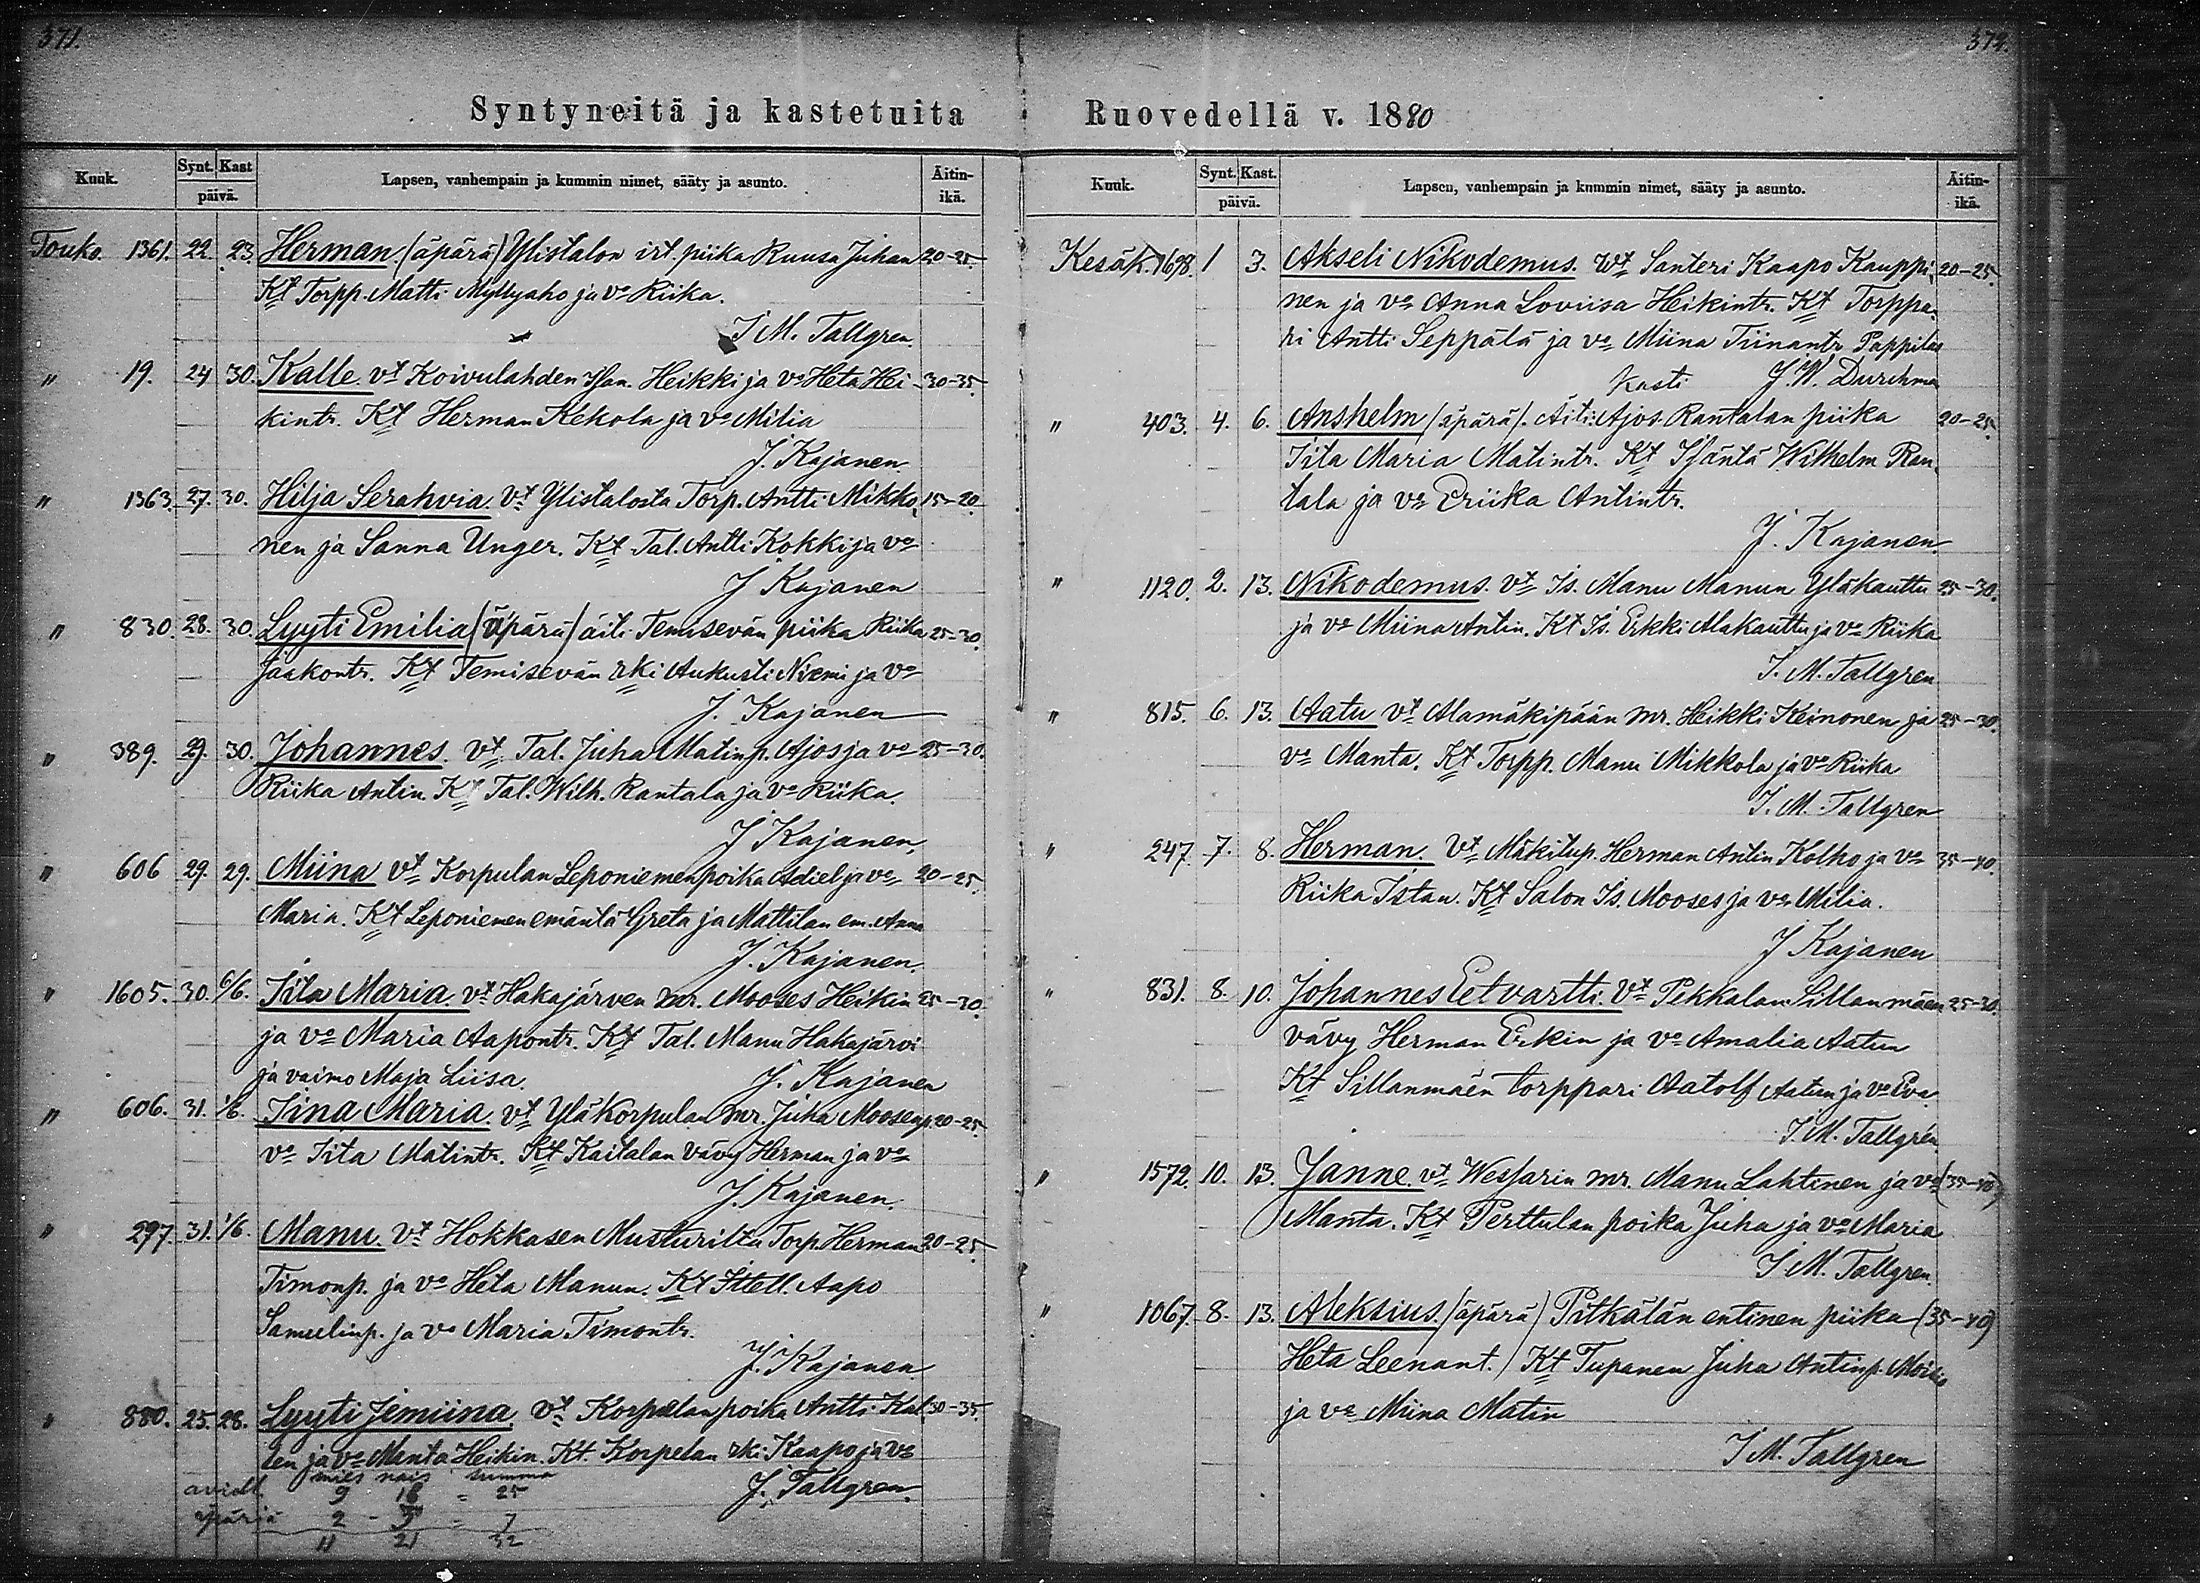 371.
Syntyneitä ja kastetuita
Kuuk. Synt. Kast päivä. Lapsen, vanhempain ja kummin nimet, sääty ja asunto. Äitin-ikä.
Touko. 1361. 22. 23. Herman (äpärä) Ylistalon irt. piika Ruusa Juhan 20-25.
Kt Torpp. Matti Myllyaho ja vo Riika.
J M. Tallgren.
" 19. 24 30. Kalle. vt Koivulahden Isän. Heikki ja vo Heta Hei- 30-35.
kintr. Kt Herman Kekola ja vo Milia
J. Kajanen.
" 1363. 27. 30. Hilja Serahvia. Vt Ylistalosta Torp. Antti Mikko- 15-20.
nen ja Sanna Unger. Kt Tal. Antti Kokki ja vo
J Kajanen
" 830. 28. 30. Lyyti Emilia (äpärä) äiti Temisevän piika Riika 25-30.
Jaakontr. Kt Temisevän rki Aukusti Niemi ja Vo
J. Kajanen
" 389. 29. 30. Johannes. Vt Tal. Juha Matinp. Ajos ja vo 25-30.
Riika Antin. Kt Tal. Wilh. Rantala ja Vo Riika.
J Kajanen,
" 606 29. 29. Miina Vt Korpulan Leponiemen poika Adiel ja vo 20-25.
Maria. Kt Leponiemen emäntä Greta ja Mattilan em. Anna
J. Kajanen.
" 1605. 30. 6/6. Iita Maria. vt Hakajärven mr. Mooses Heikin 25-30.
ja vo Maria Aapontr. Kt Tal. Manu Hakajärvi
ja vaimo Maja Liisa. J. Kajanen
" 606. 31. 1/6. Iina Maria. vt Ylä Korpulan mr. Juha Moosenp. 20-25.
vo Iita Matintr. Kt Kaitalan vävy Herman ja vo
J. Kajanen.
" 297. 31. 1/6. Manu. Vt Hokkasen Musturilta Torp. Herman 20-25
Timonp. ja vo Heta Manun. Kt Itell. Aapo
Samelinp. ja Vo Maria Timontr.
J. Kajanen
" 880. 25. 28. Lyyti Jemiina. Vt Korpulan poika Antti Kal- 30-35.
len ja vo Manta Heikin. Kt. Korpelan rki Kaapo ja Vo
J. Tallgren.
mies nais summa
aviol. 9 16 = 25
äpäriä 2 - 5 = 7
11 21 32
372.
Ruovedellä v. 1880
Kuuk. Synt. Kast. päivä. Lapsen, vanhempain ja kummin nimet, sääty ja asunto. Äitin-ikä.
Kesäk. 1698. 1 3. Akseli Nikodemus. Wt Santeri Kaapo Kauppi- 20-25.
nen ja vo Anna Loviisa Heikintr. Kt Torppa-
ri Antti Seppälä ja vo Miina Tiinantr Pappilas
Kasti J. W. Durchman
" 403. 4. 6. Anshelm (äpärä). Äiti: Ajos Rantalan piika 20-25.
Iita Maria Matintr. Kt Isäntä Wilhelm Ran-
tala ja vo Eriika Antintr.
J. Kajanen.
" 1120. 2. 13. Nikodemus. vt Is. Manu Manun Yläkauttu 25-30.
ja vo Miina Antin. Kt Is. Erkki Alakauttu ja vo Riika
J. M. Tallgren
" 815. 6. 13. Aatu vt Alamäkipään mr. Heikki Keinonen ja 25-30.
vo Manta. Kt Torpp. Manu Mikkola ja vo Riika
J. M. Tallgren
" 247. 7. 8. Herman. Vt Mäkitup. Herman Antin Kolho ja vo 35-40.
Riika Istan. Kt Salon Is. Mooses ja vo Milia.
J Kajanen
" 831. 8. 10. Johannes Eetvartti. Vt Pekkalan Sillanmäen 25-30.
vävy Herman Erkin ja vo Amalia Aatun
Kt Sillanmäen torppari Aatolf Aatun ja vo Eva.
J. M. Tallgren
" 1572. 10. 13. Janne. vt Wessarin mr. Manu Lahtinen ja vo (35-40)
Manta. Kt Perttulan poika Juha ja vo Maria
J M. Tallgren.
" 1067. 8. 13. Aleksius. (äpärä) Pitkälän entinen piika (35-40)
Heta Leenant. / Kt Tupanen Juha Antinp. Moisio
ja vo Miina Matin
J M. Tallgren